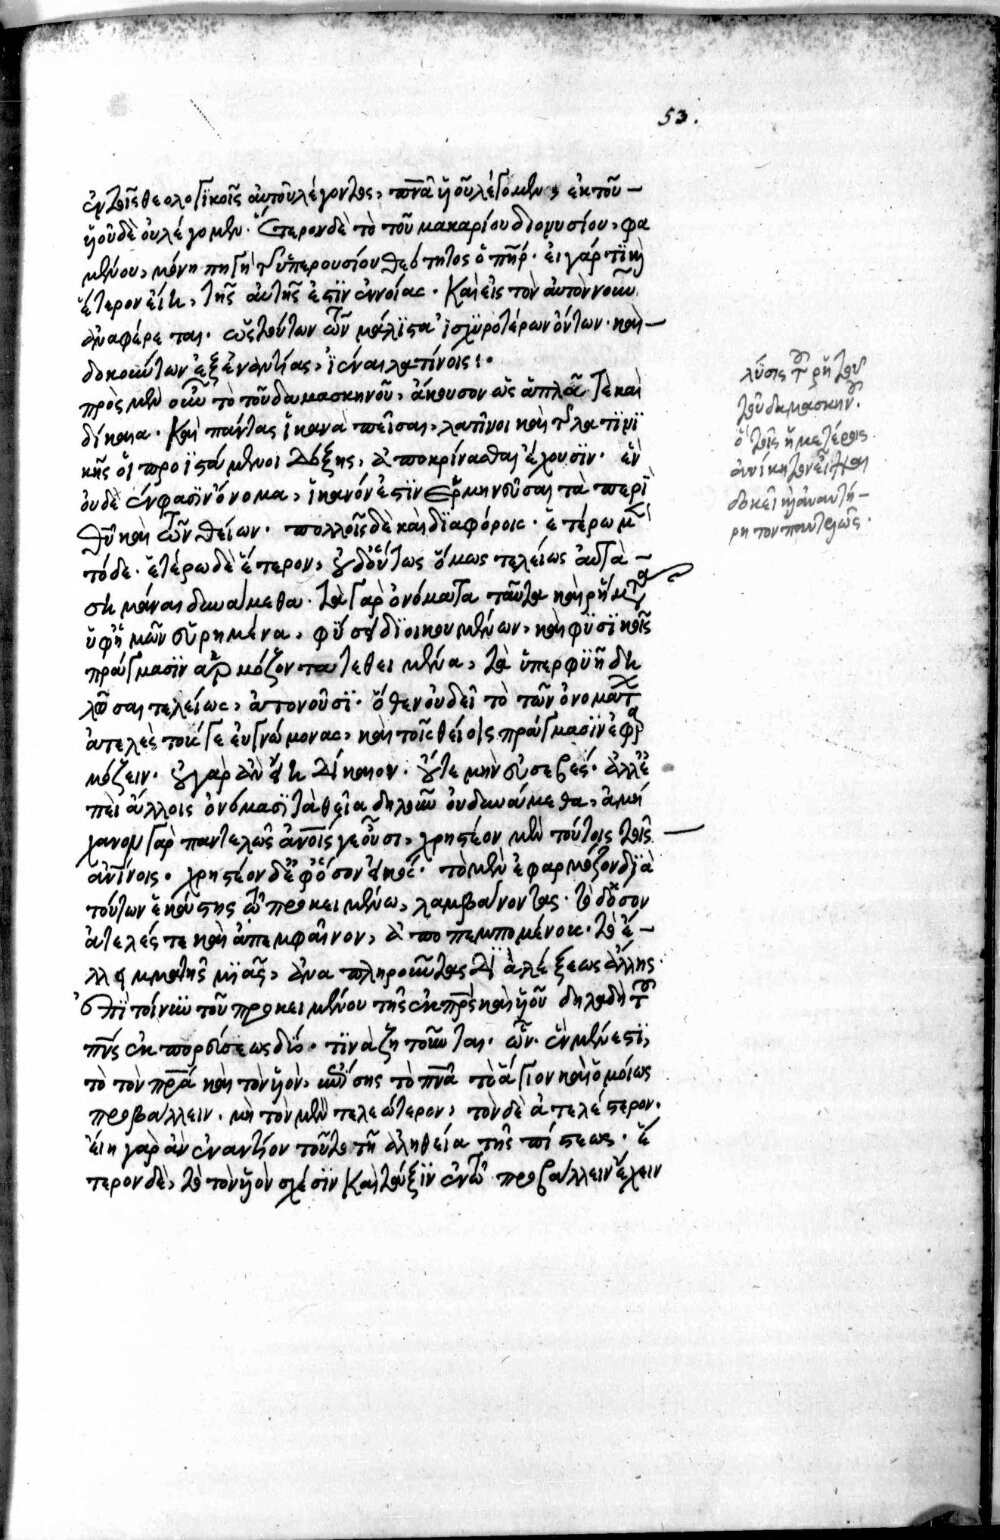 53.
ἐν τοῖς θεολογικοῖς αὐτοῦ λέγοντος, πνα ὑοῦ λέγομεν, ἐκ τοῦ
ὑοῦ δὲ οὐ λέγομεν. ἕτερον δὲ τὸ τοῦ μακαρίου διονυσίου, φα
μένου, μόνη πηγὴ τῆς ὑπερουσίου θεότητος ὁ πηρ. εἰ γάρ τι καὶ
ἕτερον εἴη, τῆς αὐτῆς ἐστὶν ἐννοίας. καὶ εἰς τὸν αὐτὸν νοῦν
ἀναφέρεται. ὡς τούτων τῶν μάλιστα ἰσχυροτέρων ὄντων καὶ
δοκούντων ἐξεναντίας ἰέναι λατίνοις:
πρὸς μὲν οὖν τὸ τοῦ δαμασκηνοῦ, ἄκουσον ὡς ἁπλᾶ τε καὶ
δίκαια. καὶ πάντας ἱκανὰ πεῖσαι, λατῖνοι καὶ τῆς λατινι
κῆς οἱ προϊστάμενοι δόξης, ἀποκρίνασθαι ἔχουσιν. ἓν
οὐδὲ ἕν φασιν ὄνομα, ἱκανόν ἐστιν ἑρμηνεῦσαι τὰ περὶ
θυ καὶ τῶν θείων. πολλοῖς δὲ καὶ διαφόροις. ἑτέρω μὲν
τόδε. ἑτέρω δὲ ἕτερον, οὐδ' οὕτως ὅμως τελείως αὐτὰ
δυνάμεθα. τὰ γὰρ ὀνόματα ταῦτα καὶ ῥήματα
ὑφ' ἡμῶν εὑρημένα, φύσει διοικουμένων, καὶ φυσικοῖς
πράγμασιν ἁρμόζοντα τεθειμένα, τὰ ὑπερφυῆ δη
λῶσαι τελείως, ἀτονοῦσι. ὅθεν οὐ δεῖ τὸ τῶν ὀνομάτων
ἀτελὲς τούς γε εὐγνώμονας, καὶ τοῖς θείοις πράγμασιν ἐφαρ
μόζειν. οὐ γὰρ ἂν εἴη δίκαιον. οὔτε μὴν εὐσεβές. ἀλλ' ἐ
πεὶ ἄλλοις ὀνόμασι τὰ θεῖα δηλοῦν οὐ δυνάμεθα, ἀμή
χανον γὰρ παντελῶς ἀνοις γε οὖσι, χρηστέον μὲν τούτοις τοῖς
ἀνίνοις. χρηστέον δὲ ἐφ' ὅσον εἰκός. τὸ μὲν ἐφαρμόζον διὰ
τούτων ἑκάστης τῷ προκειμένω, λαμβάνοντας. τὸ δ' ὅσον
ἀτελές τε καὶ ἀπεμφαῖνον, ἀποπεμπομένοις. τὸ ἐ
λλειμμα τῆς μιᾶς, ἀναπληροῦντας διὰ λέξεως ἄλλης.
Ἐπὶ τοίνυν τοῦ προκειμένου τῆς ἐκ πρς καὶ ὑοῦ δηλαδὴ τοῦ
πνς ἐκπορεύσεως δύο τινὰ ζητοῦνται. ὧν. ἓν μέν ἐστι,
τὸ τὸν πρα καὶ τὸν ὑὸν, ἐπίσης τὸ πνα τὸ ἅγιον καὶ ὁμοίως
προβάλλειν. μὴ τὸν μὲν τελεώτερον, τὸν δὲ ἀτελέστερον.
εἴη γὰρ ἂν ἐναντίον τοῦτο τῇ ἀληθεία τῆς πίστεως. ἕ
τερον δὲ, τὸ τὸν ὑὸν σχέσιν καὶ τάξιν ἐν τῷ προβάλλειν ἔχειν
λύσις τοῦ ῥητοῦ
τοῦ δαμασκηνοῦ.
ὃ τοῖς ἡμετέροις
ἀνίκητον εἶναι
δοκεῖ καὶ ἀναντίῤ
ρητον παντελῶς.